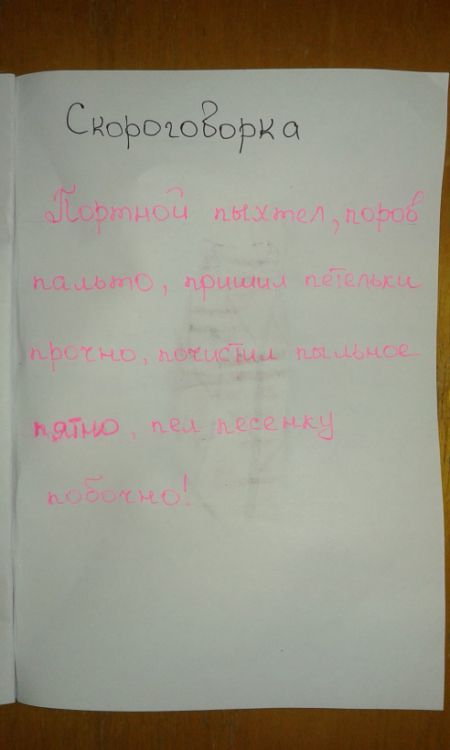 Скороговорка
Портной пыхтел, поров
пальто, пришил петельки
прочно, почистил пыльное
пятно, пел песенку
побочно!